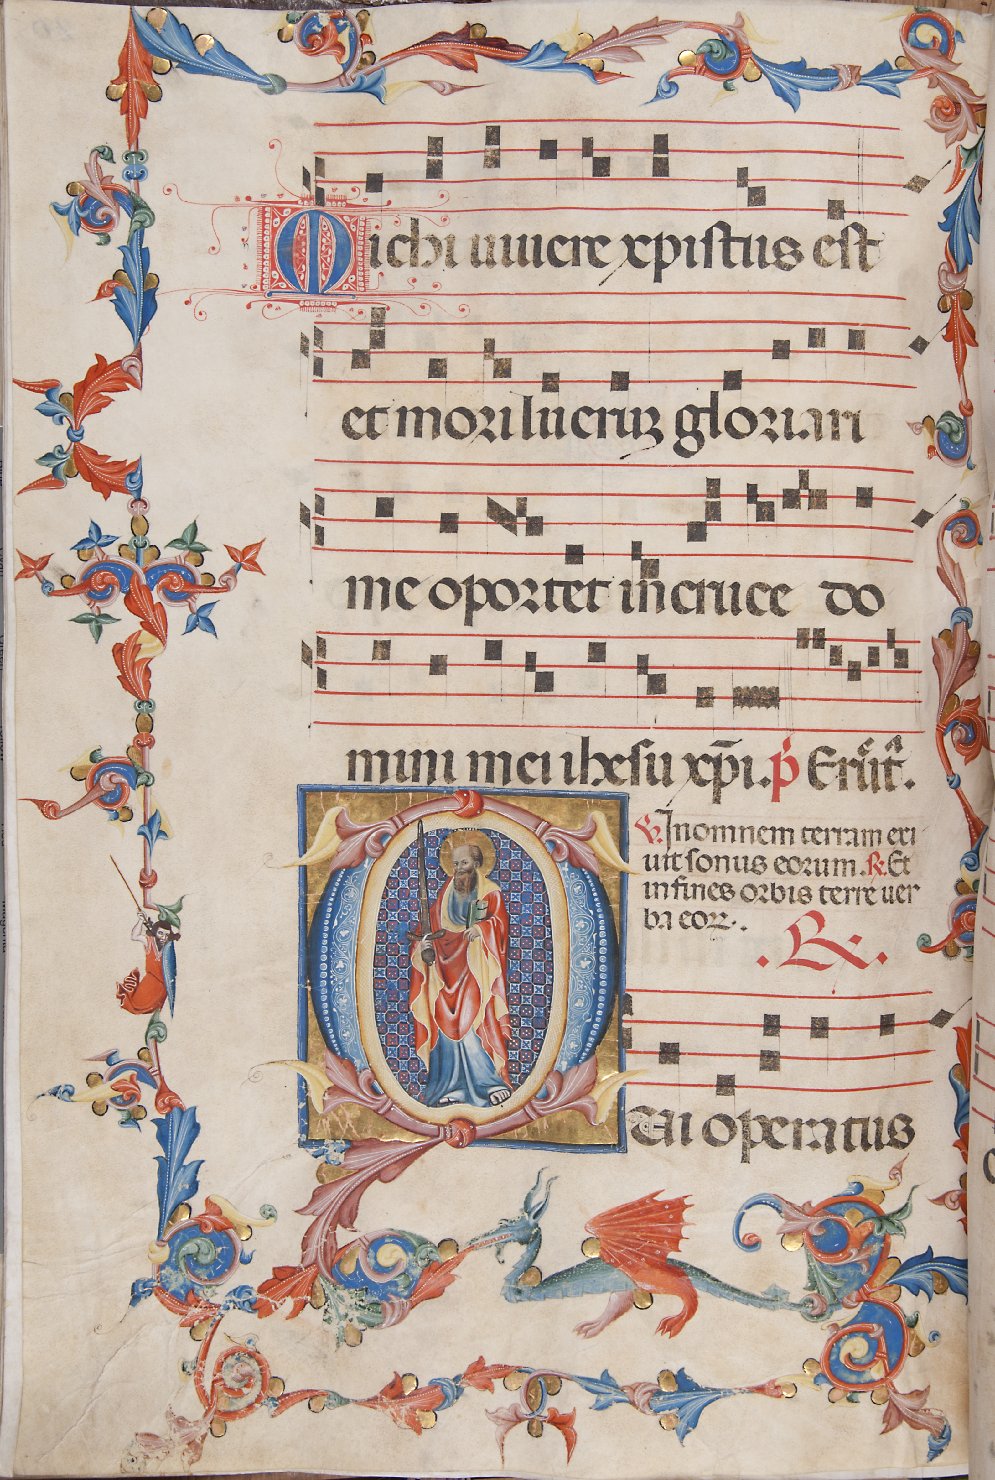 Michi uiuere xpistus est
et mori lucruꝫ gloriari
me oportet in cruce do
mini mei ihesu xp̄i. p̱ Eruͣıt.
℣ In omnem terram exi
uit sonus eorum. ℟. Et
in fines orbis terre uer
ba eoꝝ.
.℟.
Qui operatus